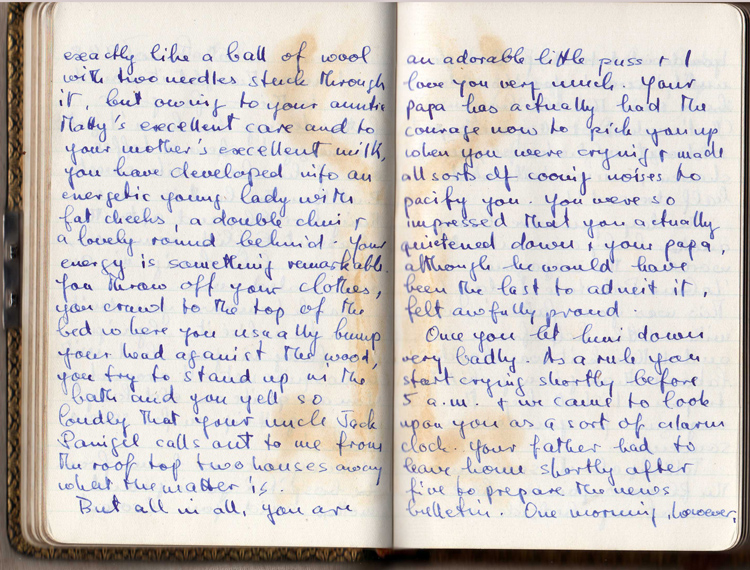 exactly like a ball of wool
with two needles stuck through
it, but owing to your auntie
Matty's excellent care and to
your mother's excellent milk,
you have developed into an
energetic young lady with
fat cheeks, a double chin +
a lovely round behind. Your
energy is something remarkable.
You throw off your clothes,
you crawl to the top of the
bed where you usually bump
your head against the wood,
you try to stand up in the
bath and you yell so
loudly that your uncle Jack
Panigel calls out to me from
the roof top two houses away
what the matter is.
But all in all, you are
an adorable little puss + I
love you very much. Your
papa has actually had the
courage now to pick you up
when you were crying + made
all sorts of cooing noises to
pacify you. You were so
impressed that you actually
quietened down + your papa,
although he would have
been the last to admit it,
felt awfully proud.
Once you let him down
very badly. As a rule you
start crying shortly before
5 a.m. + we came to look
upon you as a sort of alarm
clock. Your father had to
leave home shortly after
five to prepare the news
bulletin. One morning, however,